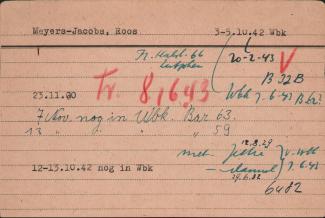 Meyers-Jacobs, Roos 3-5.10.42 Wbk
N. Halst. 66
Zutphen
20-2-43 V
B 32B
23.11.00
Tr. 8/6 43
Wbk 7-6-43 B 62
7 Nov. nog in Wbk. Bar 63.
13 " " " " 59
12.8.29
met Jetta } v. Wbk
- Samuel } 7.6.43
12-13.10.42 nog in Wbk
6482